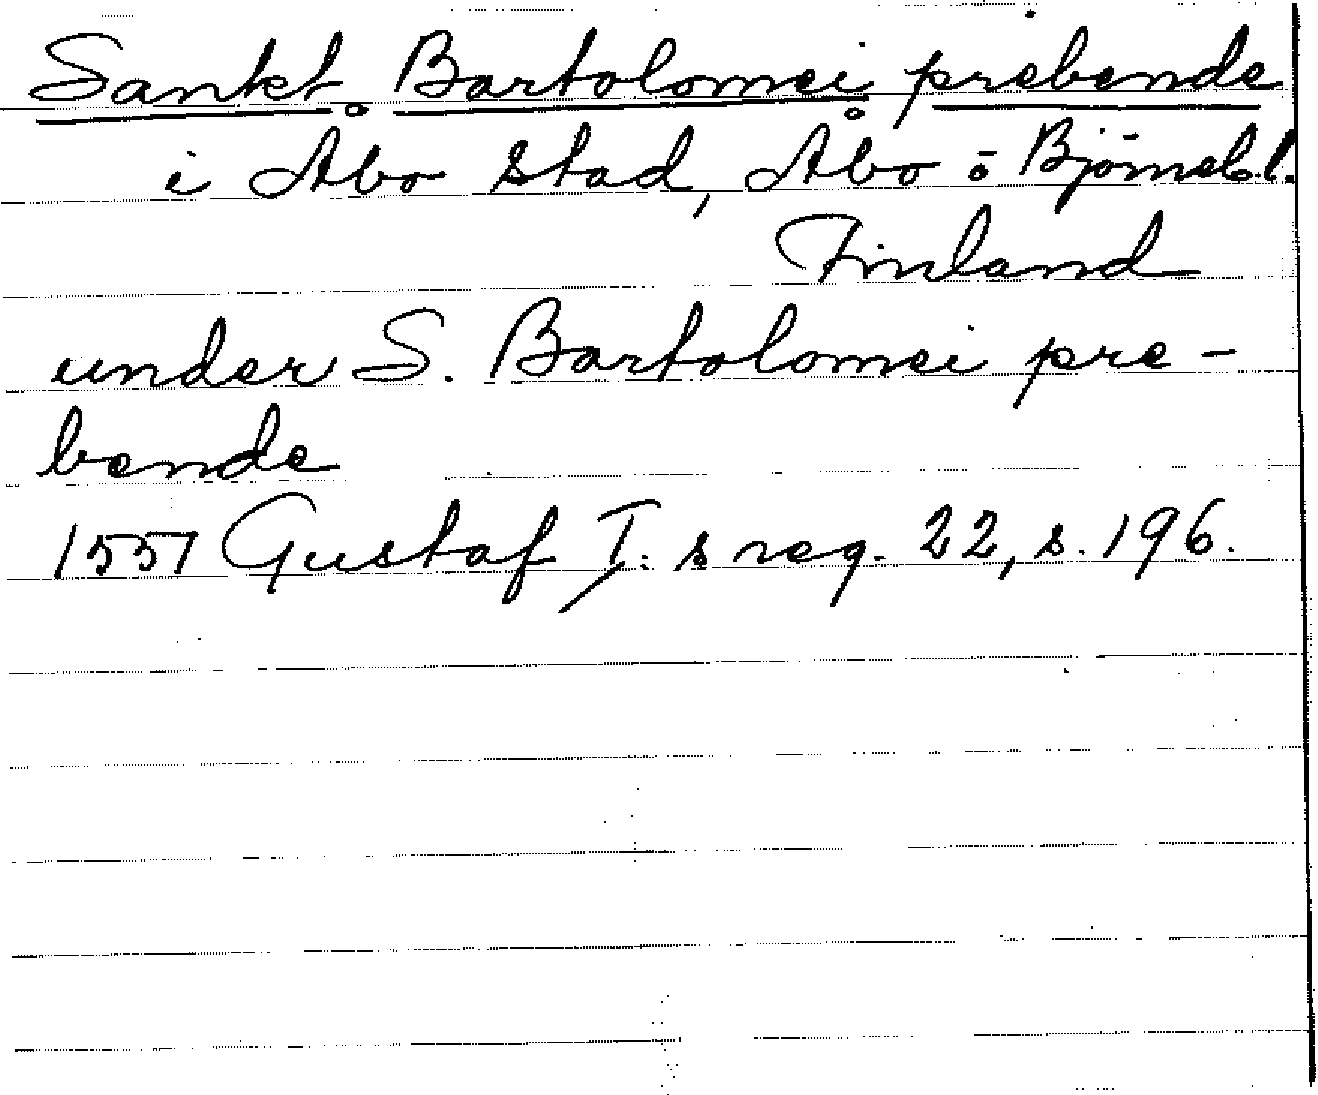 Sankt Bartolomei prebende
i Åbo stad, Åbo o Björneb.l.
Finland
under S. Bartolomei pre-
bende
1551 Gustaf I:s reg. 22, s. 196.